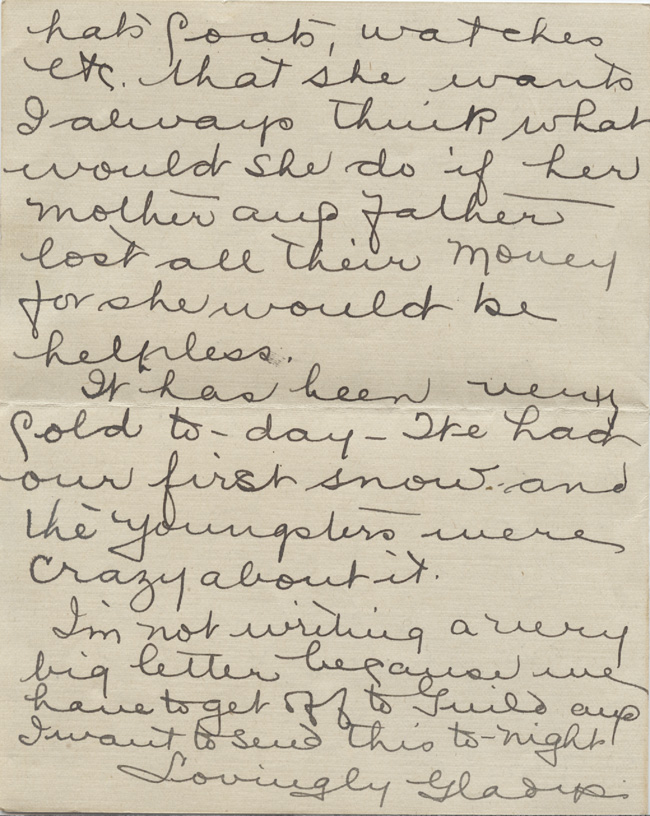 hats coats, watches
etc. that she wants
I always think what
would she do if her
mother and father
lost all their money
for she would be
helpless.
It has been very
cold to-day - We had
our first snow and
the youngsters were
crazy about it.
I'm not writing a very
big letter because we
have to get off to Guild and
I want to send this to-night
Lovingly Gladys.